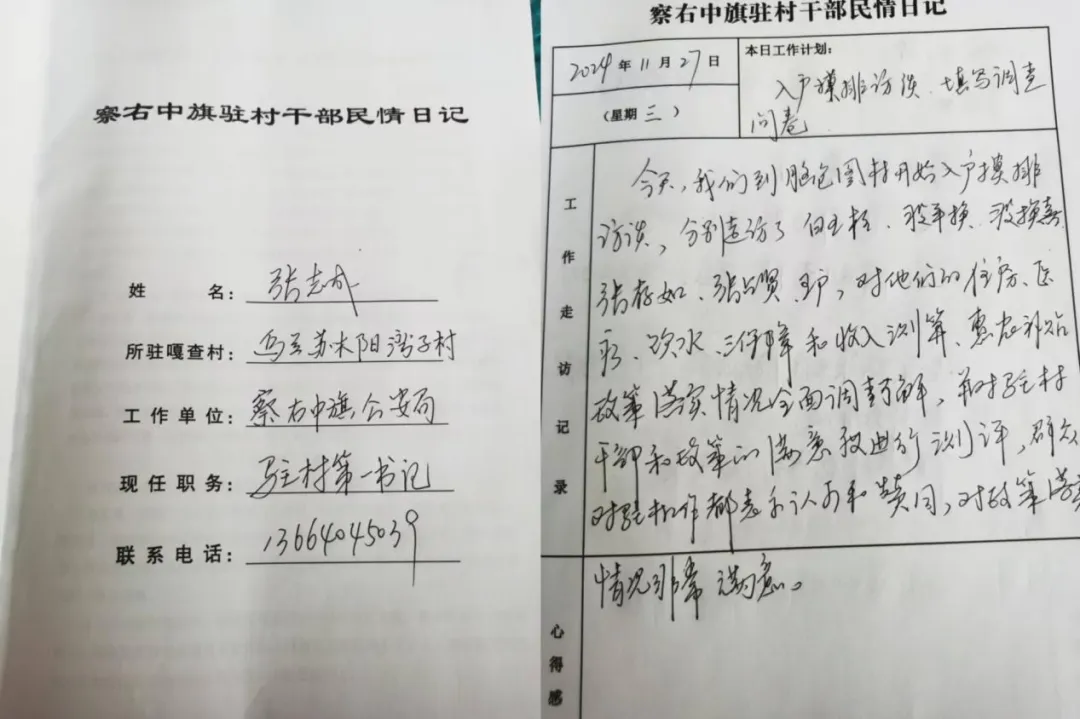 察右中旗驻村干部民情日记
姓 名: 张志成
所驻嘎查村: 乌兰苏木阳湾子村
工作单位: 察右中旗公安局
现任职务: 驻村第一书记
联系电话: 13664045039
察右中旗驻村干部民情日记
2024年11月27日
(星期三)
本日工作计划:
入户摸排访谈、填写调查
问卷
工作走访记录
今天,我们到脑包图村开始入户摸排
访谈,分别走访了白玉柱、
张存如、张 户,对他们的住房、医
疗、饮水、三保障和收入测算、惠农补贴
政策落实情况全面调查了解,并对驻村
干部和政策的满意救进行测评,群众
对驻村工作都表示认可和赞同,对政策落实
情况非常满意。
心得感